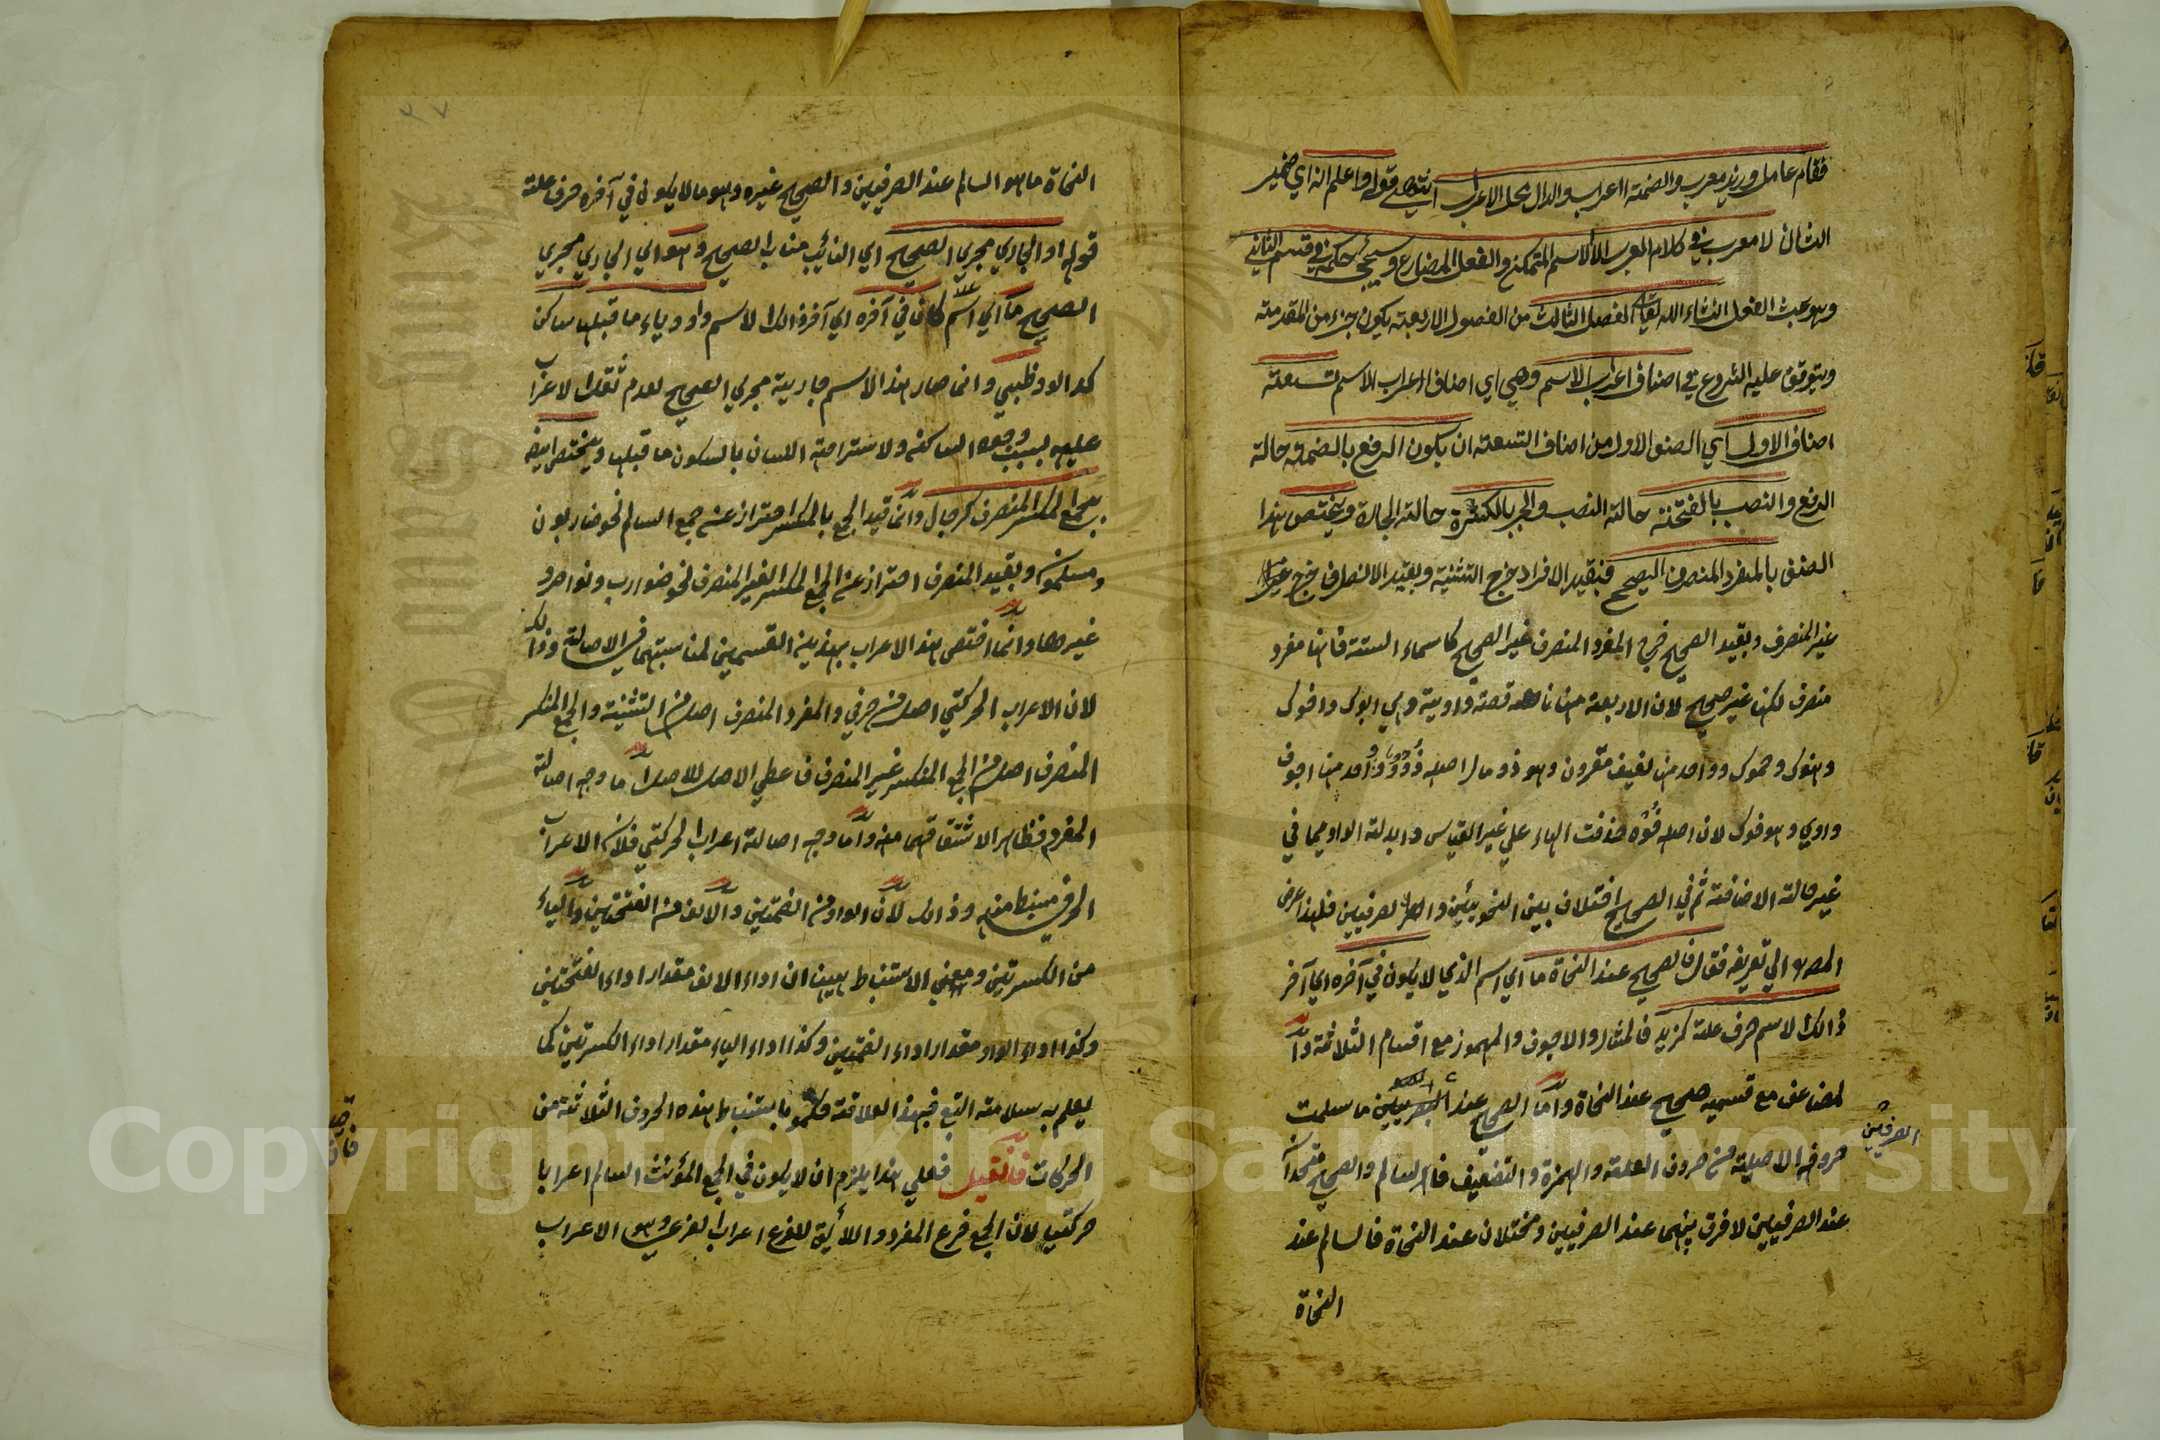 فقام عامل وزيد معرب والضمة اعراب والدال محل الاعراب انتهى قوله واعلم انه اي ضمير
الشان لا معرب في كلام العرب الا الاسم المتمكن والفعل المضارع وسيجئ حكمه في قسم الثاني
وهو بحث الفعل انشاء الله تعالى الفصل الثالث من الفصول الاربعة يكون جزء من المقدمة
ويتوقف عليه الشروع في اصناف اعراب الاسم وهي اي اصناف اعراب الاسم تسعة
اصناف الاول اي الصنف الاول من اصناف التسعة ان يكون الرفع بالضمة حالة
الرفع والنصب بالفتحة حالة النصب والجر بالكسرة حالة الجارة ويختص بهذا
الصنف بالمفرد المنصرف الصحيح فبقيد الافراد خرج التثنية وبقيد الانصراف خرج
غير المنصرف وبقيد الصحيح خرج المفرد المنصرف غير الصحيح كاسماء الستة فانها مفرد
منصرف لكن غير صحيح لان الاربعة منها ناقصة واوية وهي ابوك واخوك
وهنوك وحموك وواحد منها لفيف مقرون وهو ذو مال اصله ذوو وواحد منها اجوف
واوي وهو فوك لان اصله فوه حذفت الهاء علي غير القياس وابدلت الواو ميما في
غير حالة الاضافة ثم في الصحيح اختلاف بين النحويين والصرفيين فلهذا عرض
المصـ الي تعريفه فقال فالصحيح عند النحاة ما اي اسم الذي لا يكون في آخره اي آخر
ذالك الاسم حرف علة كزيد فالمثال والاجوف والمهموز مع اقسام الثلاثة وا
لمضاعف مع قسميه صحيح عند النحاة واما الصحيح عند ما سلمت
الصرفيين
حروفه الاصلية من حروف العلة والهمزة والتضعيف فالسالم والصحيح متحدان
عند الصرفيين لا فرق بينهما عند الصرفيين ومختلفان عند النحاة فالسالم عند
النحاة
النحاة ما هو السالم عند الصرفيين والصحيح غيره وهو ما لا يكون في آخره حرف علة
قوله او الجاري مجري الصحيح اي النائب مناب الصحيح وهو اي الجاري مجري
الصحيح ما اي اسم كان في آخره اي آخر ذالك الاسم واو وياء ما قبلها ساكن
كدلو وظبي وانما صار هذا الاسم جارية مجري الصحيح لعدم ثقل الاعراب
عليه بسبب وجود الساكنة ولاستراحة اللسان بالسكون ما قبلها ويختص ايضا
بجمع المكسر المنصرف كرجال وانما قيد الجمع بالمكسر احتراز عن جمع السالم نحو ضاربون
ومسلمون وبقيد المنصرف احتراز عن الجمع المكسر الغير المنصرف نحو ضوارب ونواصر و
غيرهما وانما اختص هذا الاعراب بهذين القسمين لمناسبتهما في الاصالة وذالك
لان الاعراب الحركتي اصل من حرفي والمفرد المنصرف اصل من التثنية والجمع المكسر
المنصرف اصل من الجمع المكسر غير المنصرف فاعطي الاصل للاصل اما وجه اصالة
المفرد فظاهر لاشتقاقهما منه واما وجه اصالة اعراب الحركتي فلان الاعراب
الحرفي مستنبط منه وذالك لان الواو من الضمتين والالف من الفتحتين والياء
من الكسرتين ومعني الاستنباط هيهنا ان اداء الالف مقدار اداء الفتحتين
وكذا اداء الواو مقدار اداء الضمتين وكذا اداء الياء مقدار اداء الكسرتين كما
يعلم به سلامة الطبع فبهذا العلاقة حكموا باستنباط هذه الحروف الثلاثة من
الحركات فان قيل فعلي هذا يلزم ان لا يكون في الجمع المؤنث السالم اعرابا
حركتيا لان الجمع فرع المفرد واللائق للفرع اعراب الفرعي وهو الاعراب
Copyright © King Saud University
King Saud University
1957